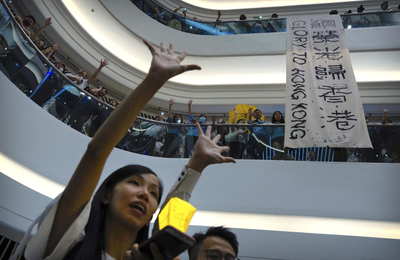 願榮光歸香港
GLORY TO HONG KONG